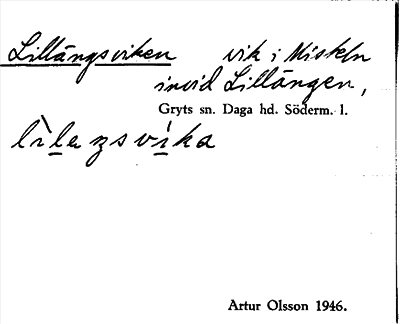 Lillängsviken vik i Miskeln
invid Lillängen,
Gryts sn. Daga hd. Söderm. l.
lìlenzsvíka
Artur Olsson 1946.